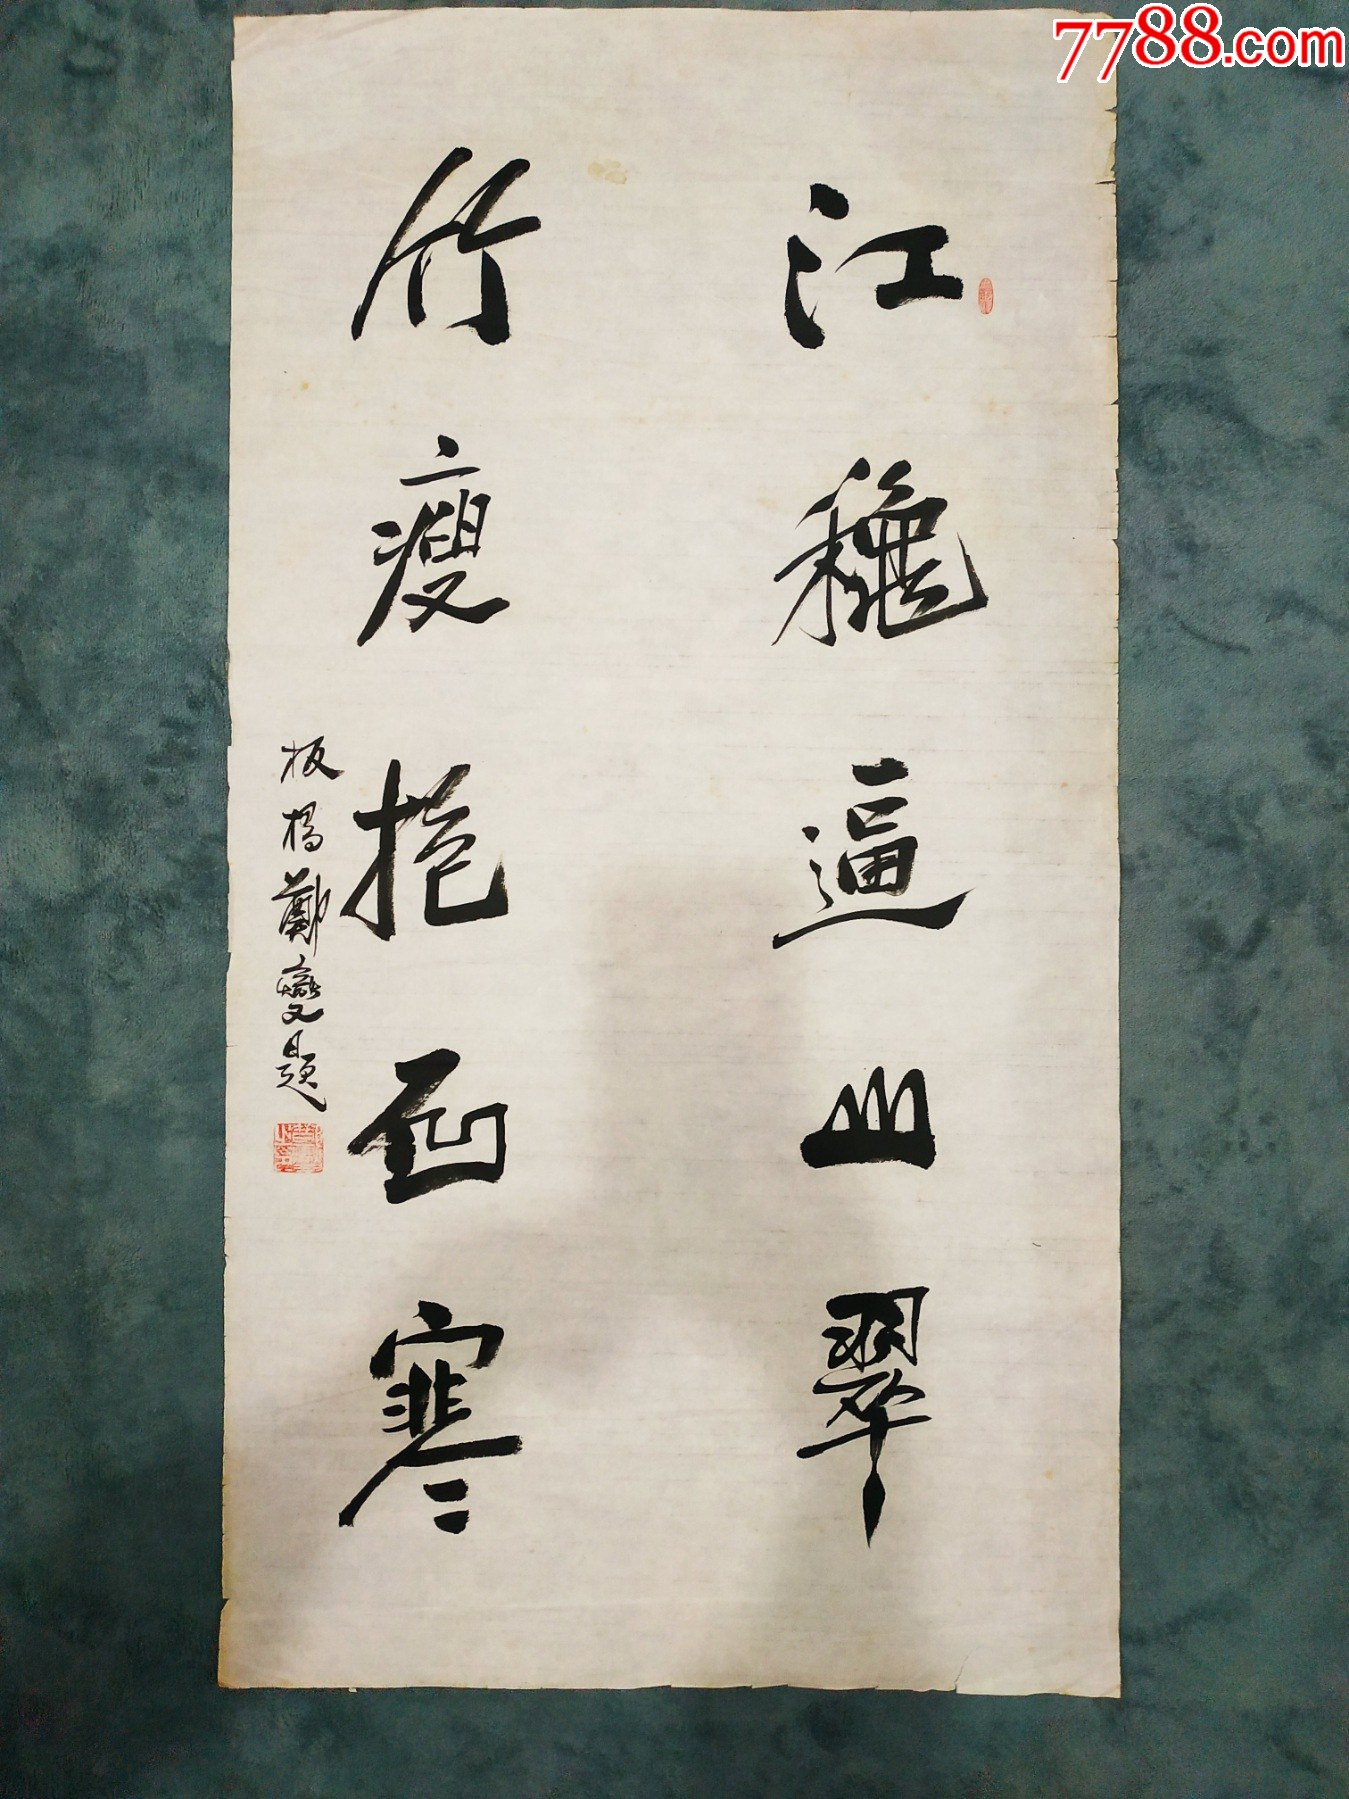 7788.com
江龝逼山翠
竹瘦抱石寒
板橋鄭燮題